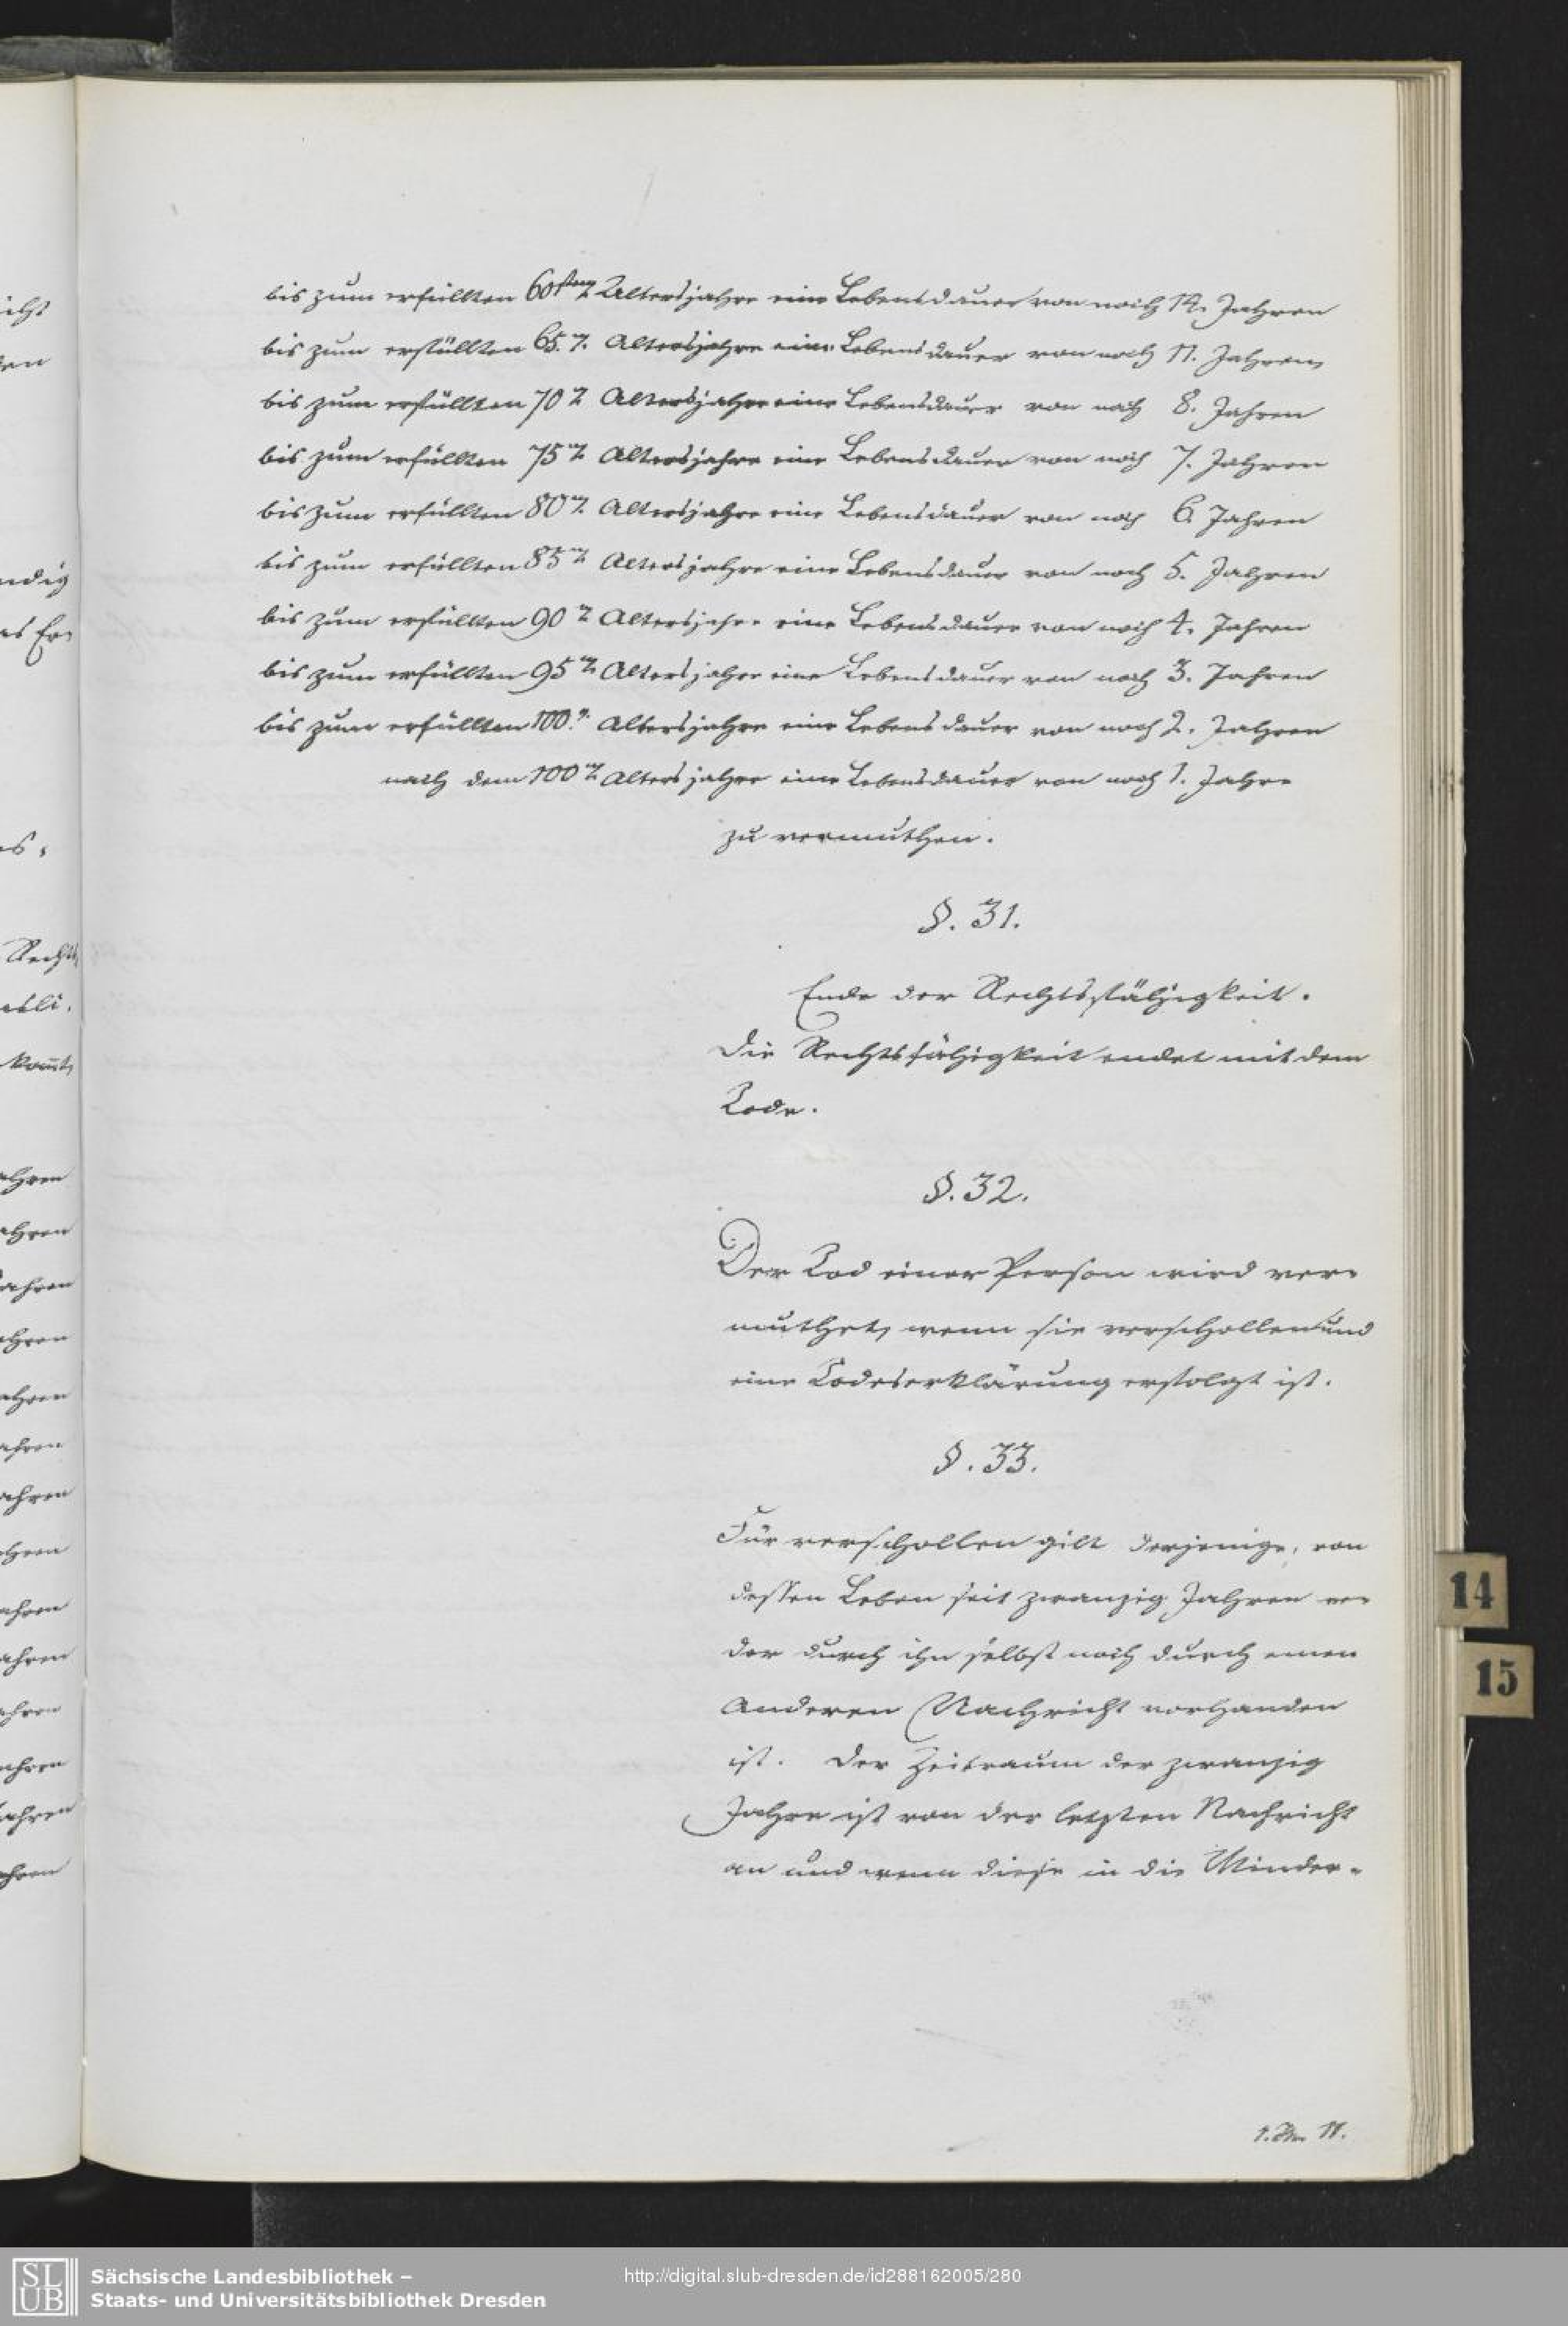 bis zum erfüllten 60sten Altersjahre eine Lebensdauer von noch 14. Jahren
bis zum erfüllten 65.n Altersjahre eine Lebensdauer von noch 11. Jahren,
bis zum erfüllten 70n Altersjahre eine Lebensdauer von noch 8. Jahren
bis zum erfüllten 75n Altersjahre eine Lebensdauer von noch 7. Jahren
bis zum erfüllten 80n Altersjahre eine Lebensdauer von noch 6. Jahren
bis zum erfüllten 85n Altersjahre eine Lebensdauer von noch 5. Jahren
bis zum erfüllten 90n Altersjahre eine Lebensdauer von noch 4. Jahren
bis zum erfüllten 95n Altersjahre eine Lebensdauer von noch 3. Jahren
bis zum erfüllten 100.n Altersjahre eine Lebensdauer von noch 2. Jahren
nach dem 100n Altersjahre eine Lebensdauer von noch 1. Jahre
zu vermuthen.
§. 31.
Ende der Rechtsfähigkeit.
Die Rechtsfähigkeit endet mit dem
Tode.
§. 32.
Der Tod einer Person wird ver-
muthet, wenn sie verschollen und
eine Todeserklärung erfolgt ist.
§. 33.
Für verschollen gilt derjenige, von
dessen Leben seit zwanzig Jahren we-
der durch ihn selbst noch durch einen
Anderen Nachricht vorhanden
ist. Der Zeitraum der zwanzig
Jahre ist von der letzten Nachricht
an und wenn diese in die Minder-
11.
14
15
SLUB
Sächsische Landesbibliothek –
Staats- und Universitätsbibliothek Dresden
http://digital.slub-dresden.de/id288162005/280